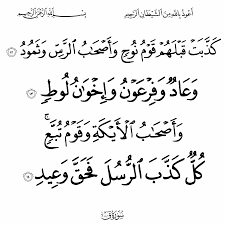 أعوذ بالله من الشيطان الرجيم بسم الله الرحمن الرحيم
كَذَّبَتْ قَبْلَهُمْ قَوْمُ نُوحٍ وَأَصْحَابُ الرَّسِّ وَثَمُودُ ١٢
وَعَادٌ وَفِرْعَوْنُ وَإِخْوَانُ لُوطٍ ١٣
وَأَصْحَابُ الْأَيْكَةِ وَقَوْمُ تُبَّعٍ ۚ
كُلٌّ كَذَّبَ الرُّسُلَ فَحَقَّ وَعِيدِ ١٤
سورة ق